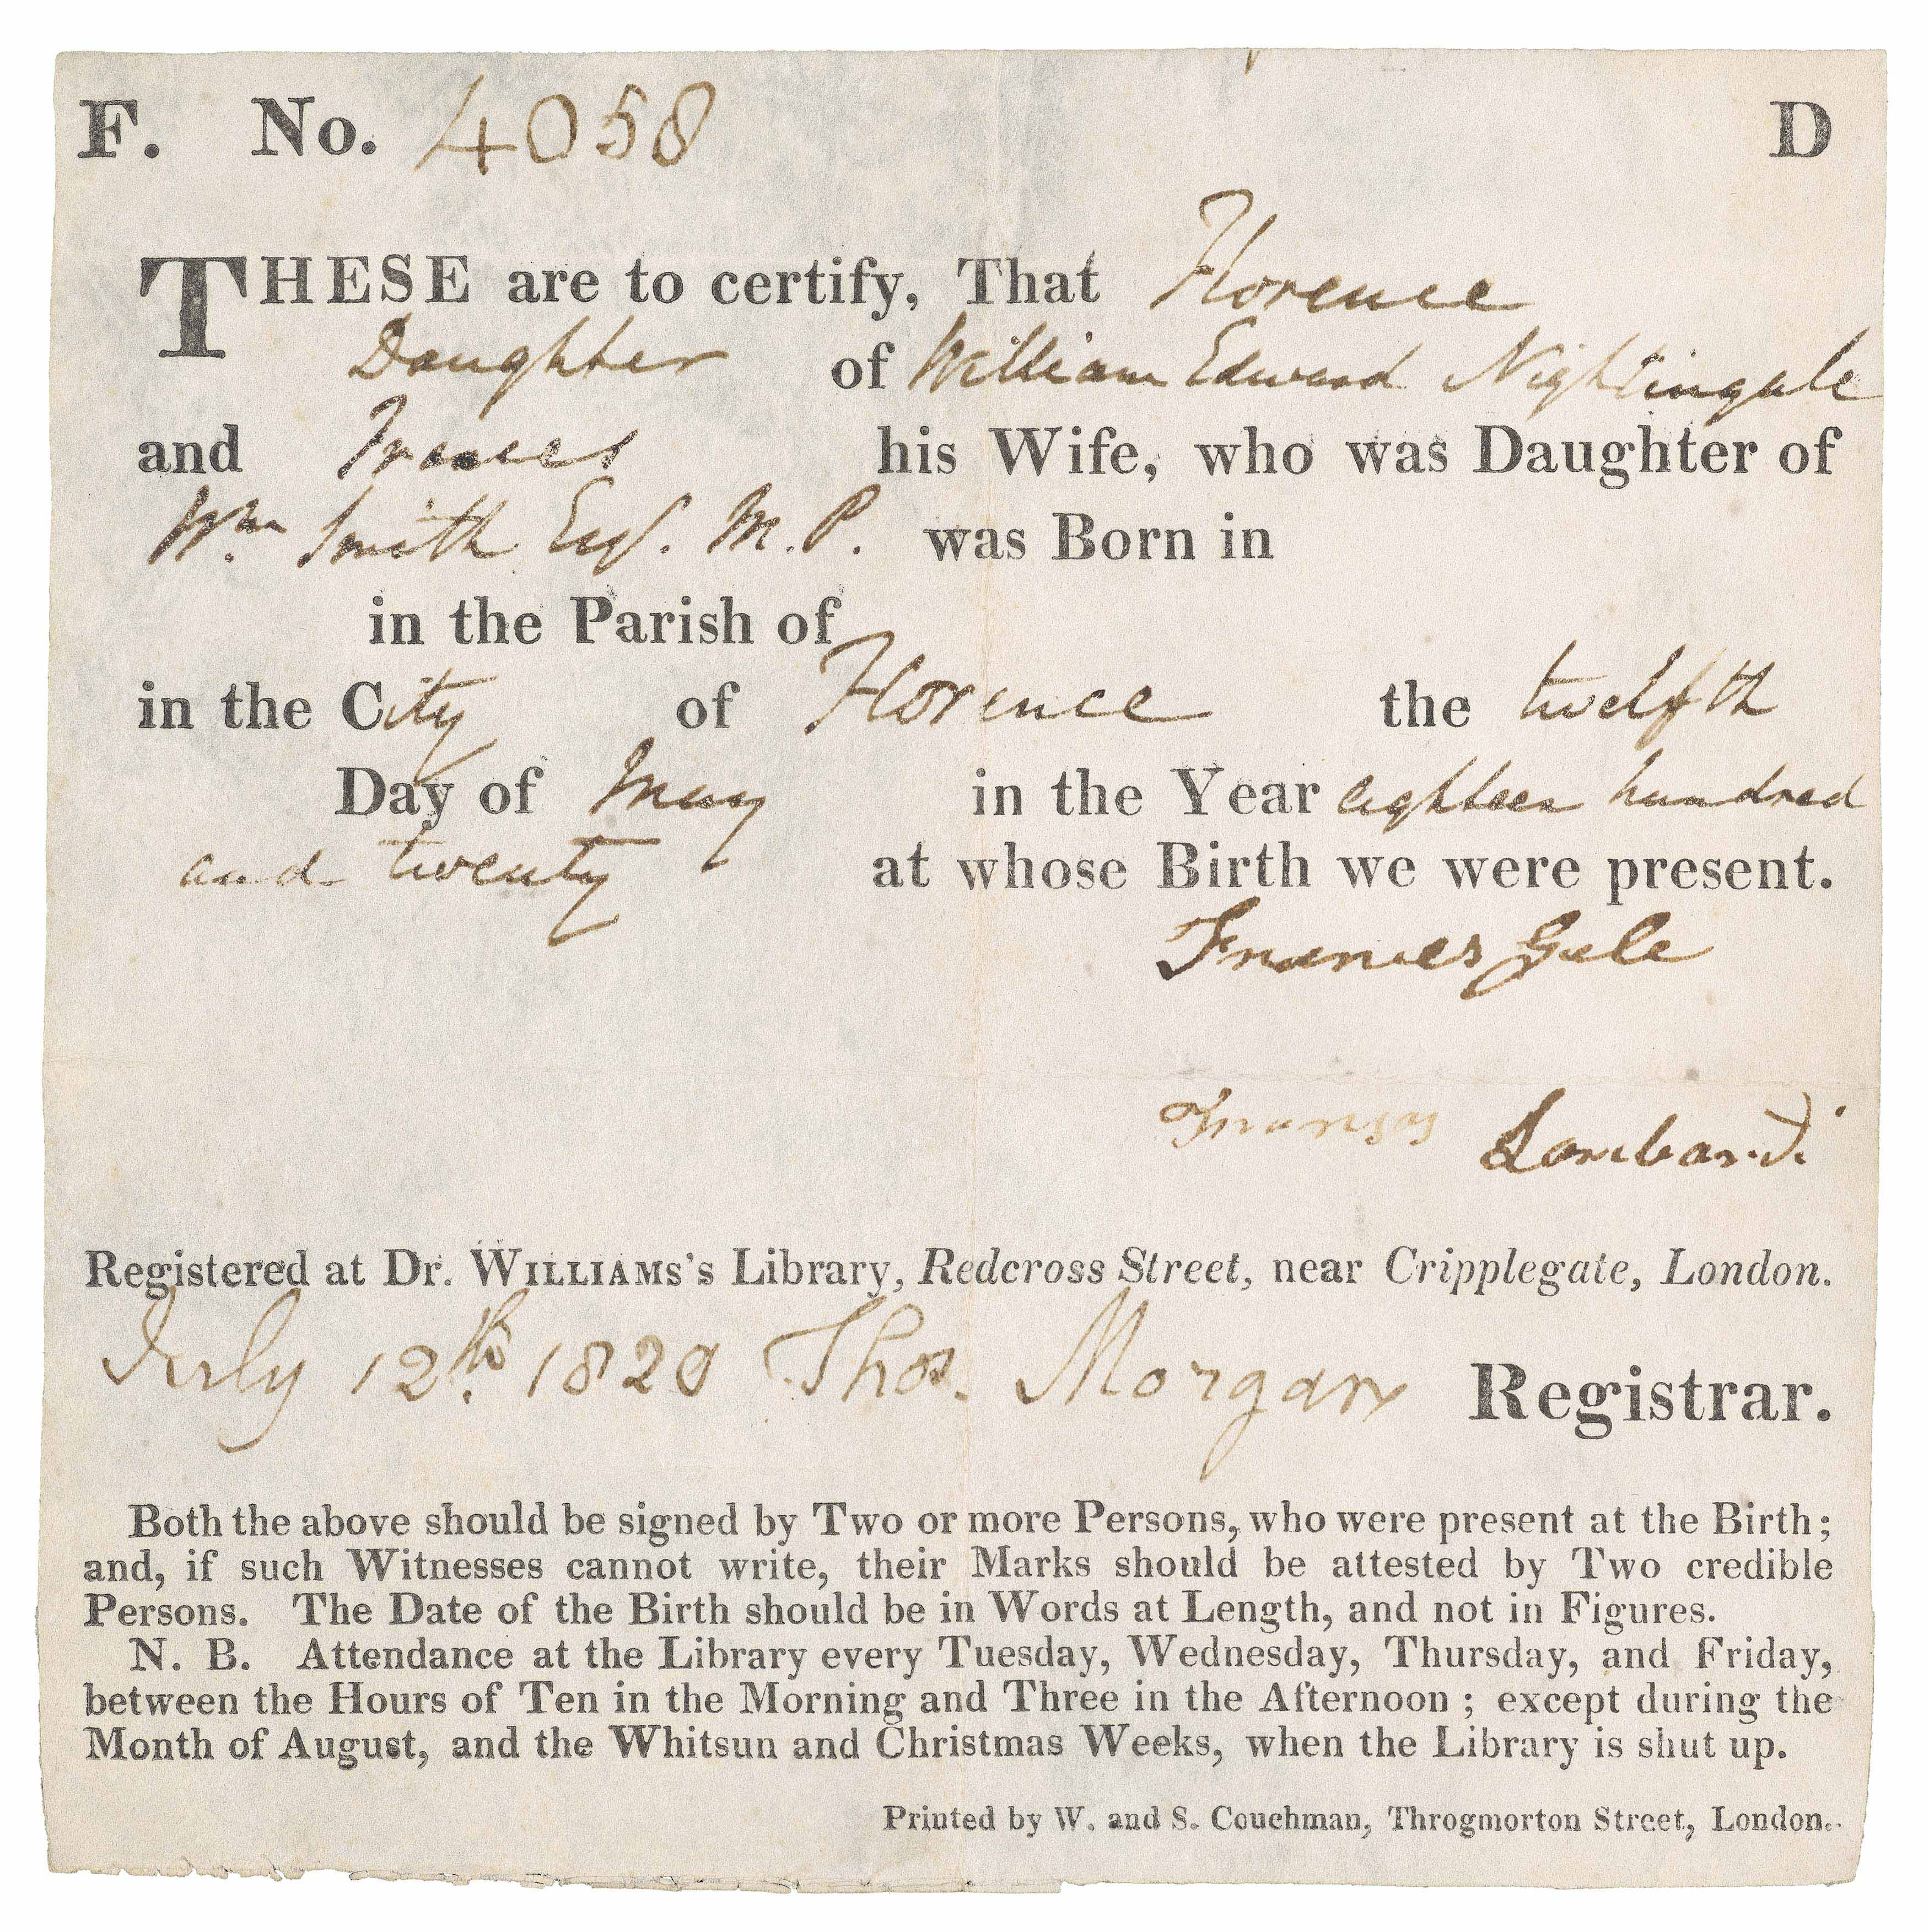 F. No. 4058 D
THESE are to certify, That Florence
Daughter of William Edward Nightingale
and Frances his Wife, who was Daughter of
Wm. Smith Esq. M.P. was Born in
in the Parish of
in the City of Florence the twelfth
Day of May in the Year eighteen hundred
and twenty at whose Birth we were present.
Frances Gale
Lombardi
Registered at Dr. WILLIAMS's Library, Redcross Street, near Cripplegate, London.
July 12th. 1820 Thos. Morgan Registrar.
Both the above should be signed by Two or more Persons, who were present at the Birth;
and, if such Witnesses cannot write, their Marks should be attested by Two credible
Persons. The Date of the Birth should be in Words at Length, and not in Figures.
N. B. Attendance at the Library every Tuesday, Wednesday, Thursday, and Friday,
between the Hours of Ten in the Morning and Three in the Afternoon; except during the
Month of August, and the Whitsun and Christmas Weeks, when the Library is shut up.
Printed by W. and S. Couchman, Throgmorton Street, London.